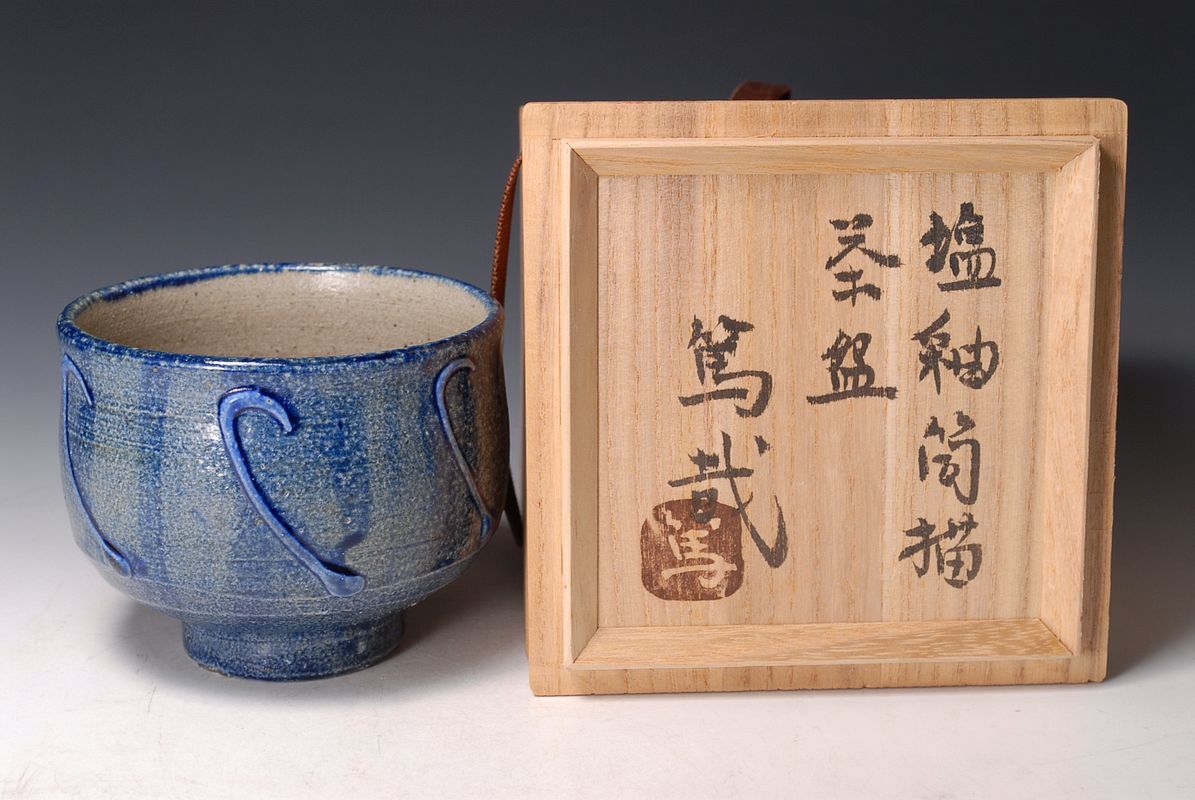 塩釉筒描
茶盌
篤哉
篤